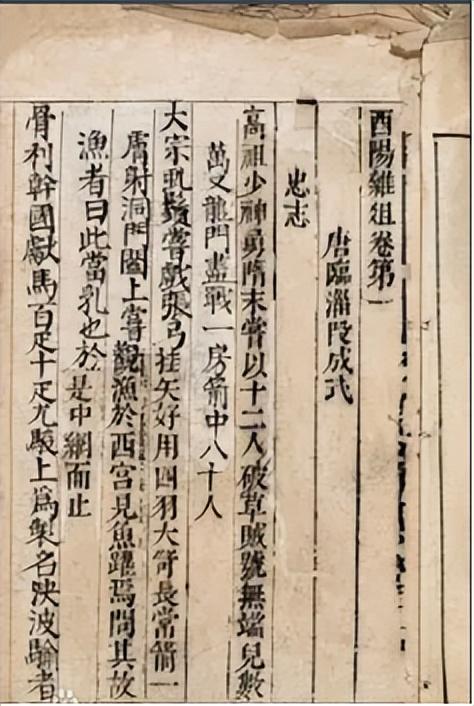 酉陽雜俎卷第一
唐臨淄段成式
忠志
高祖少神勇隋末嘗以十二人破草賊號無端兒數
萬又龍門盡戰一房箭中八十人
大宗虬鬚嘗戲張弓挂矢好用四羽大笴長常箭一
膚射洞門闔上嘗觀漁於西宮見魚躍焉問其故
漁者曰此當乳也於是中網而止
骨利幹國獻馬百疋十疋尤駿上爲製名决波騟者